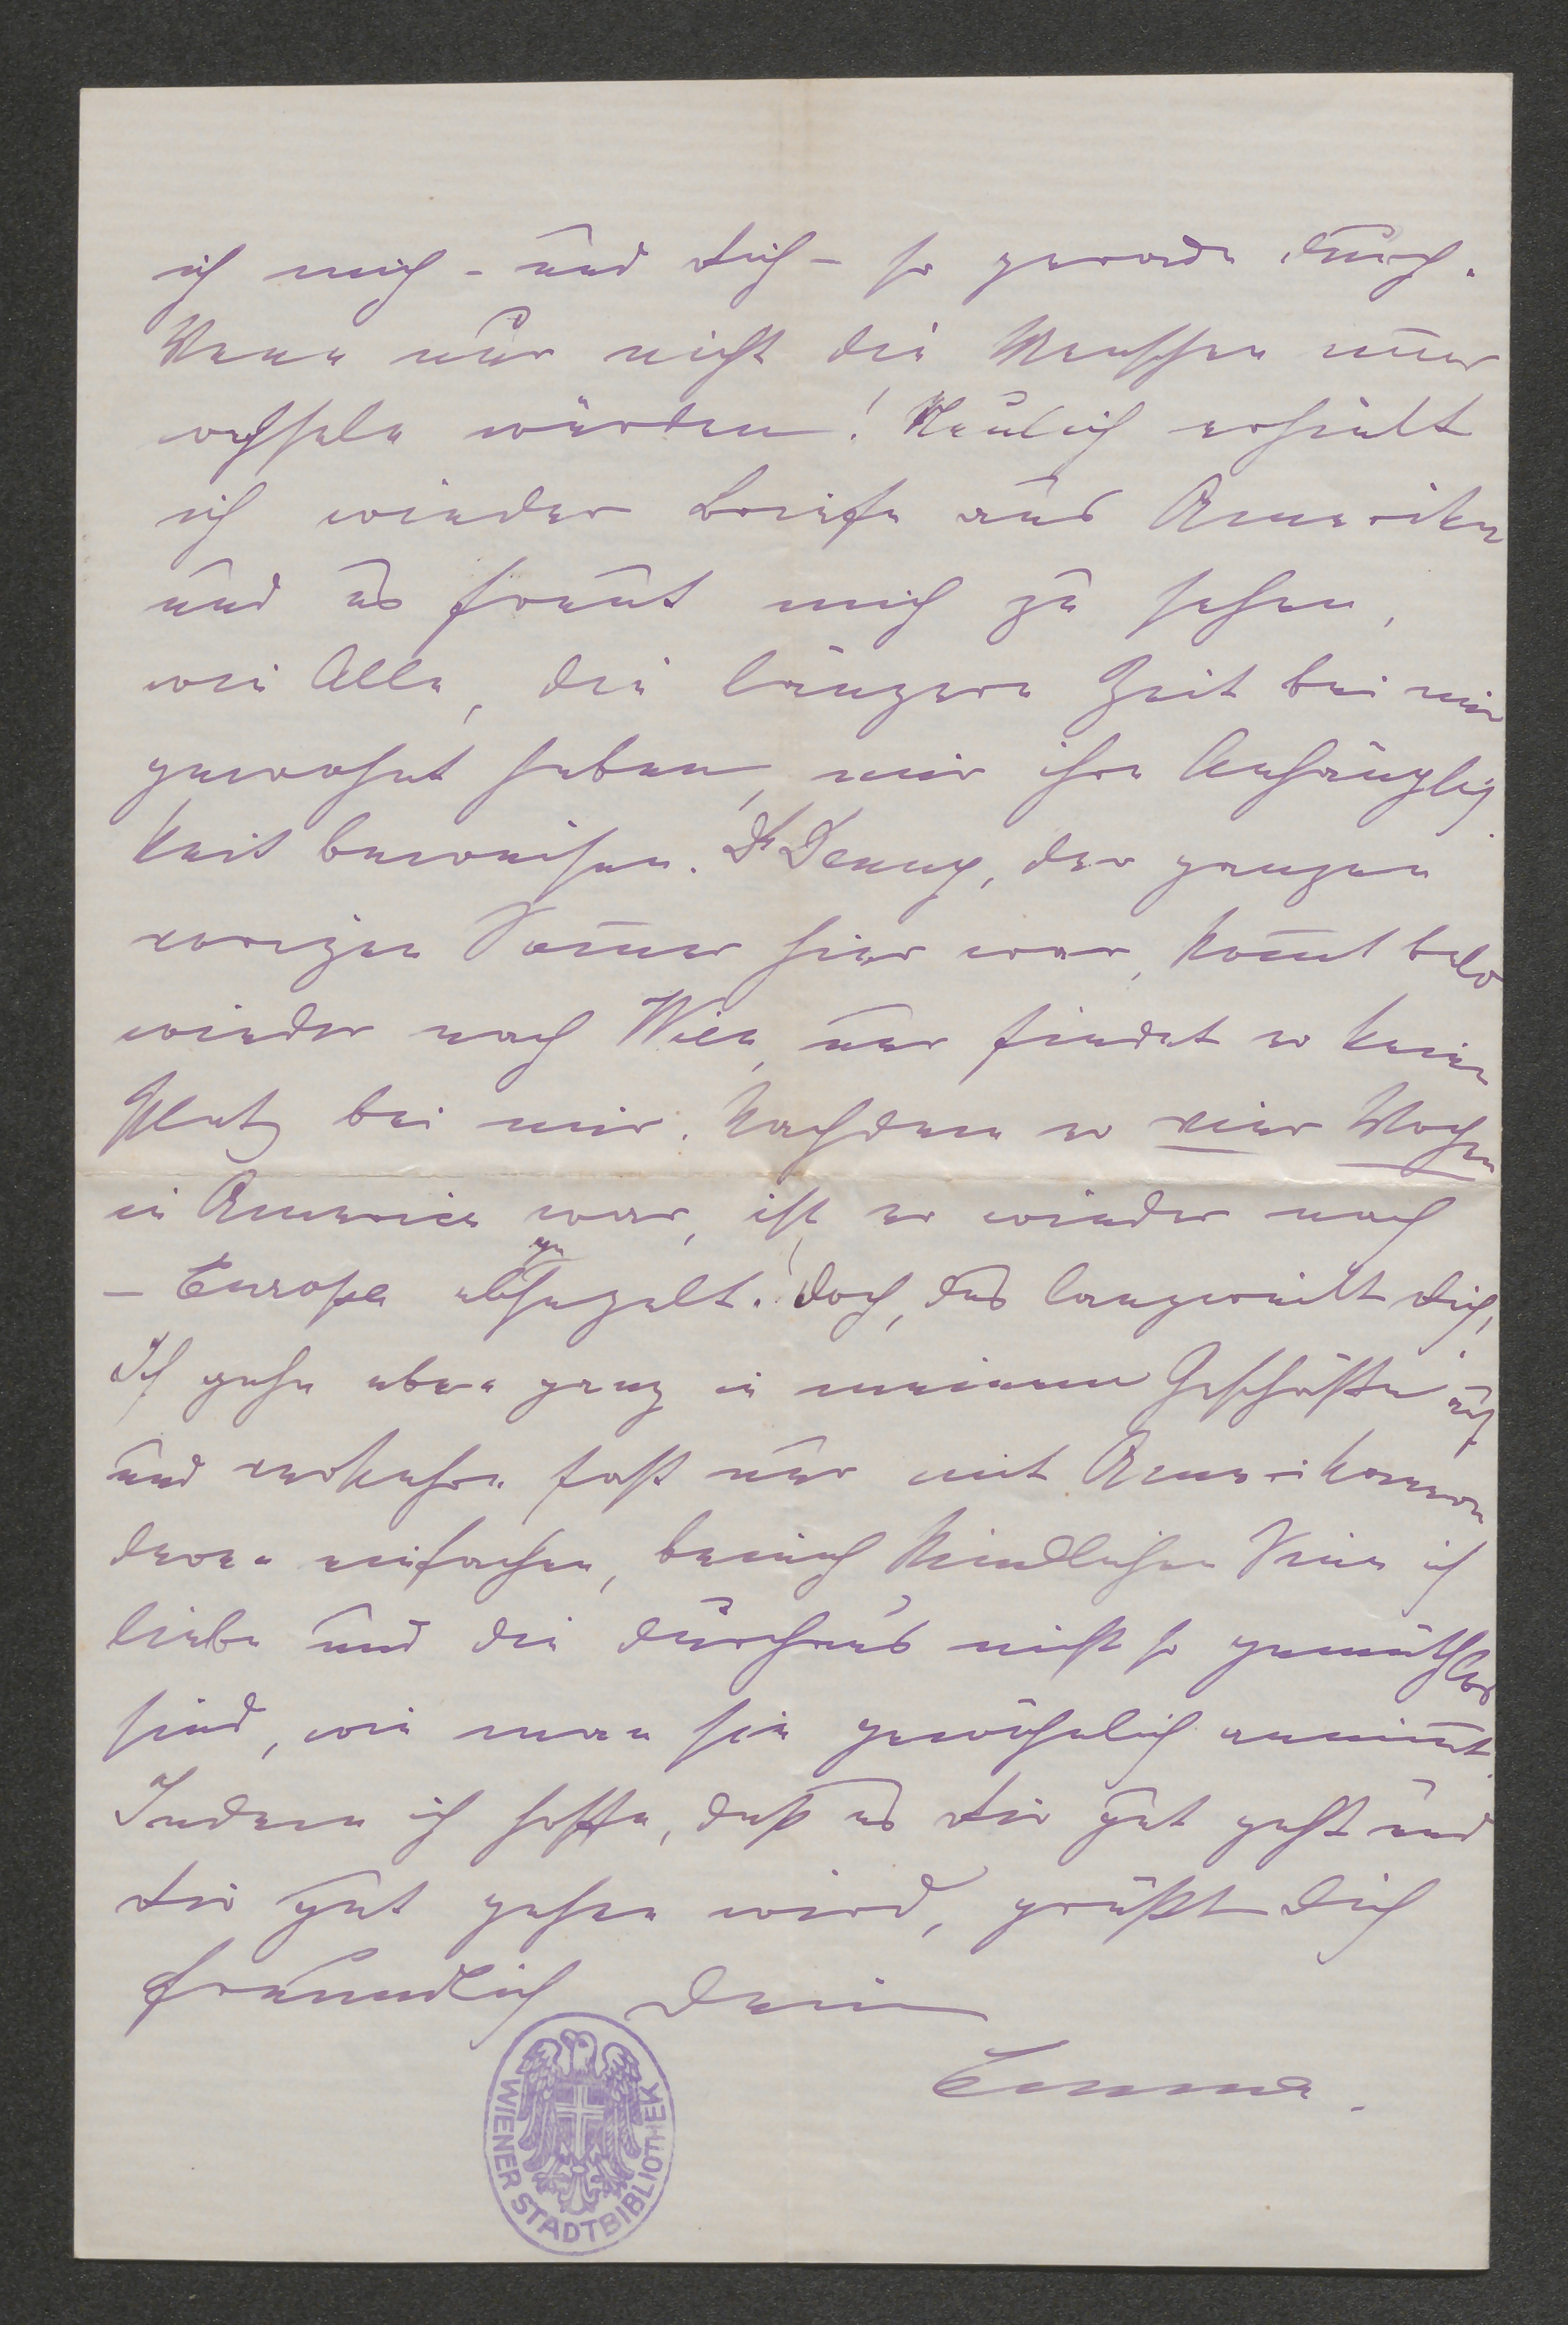 ich mich - und Dich - so gerade durch.
Wenn nur nicht die Menschen im̄er
wechseln würden! Neulich erhielt
ich wieder Briefe aus Amerika
und es freut mich zu sehen,
wie Alle, die längere Zeit bei mir
gewohnt haben, mir ihre Anhänglich
keit beweisen. Dr Denny, der ganzen
vorigen Som̄er hier war, kom̄t bald
wieder nach Wien, nur findet er keinen
Platz bei mir. Nachdem er vier Wochen
in America war, ist er wieder nach
- Europa abgesegelt! Doch, das langweilt Dich,
Ich gehe eben ganz in meinem Geschäfte auf
und verkehre fast nur mit Amerikanern
deren einfachen, beinah kindlichen Sinn ich
liebe und die durchaus nicht so gemüthlos
sind, wie man sie gewöhnlich annim̄t.
Indem ich hoffe, daß es Dir gut geht und
Dir gut gehen wird, grüßt Dich
freundlich Deine
Emma.
WIENER STADTBIBLIOTHEK